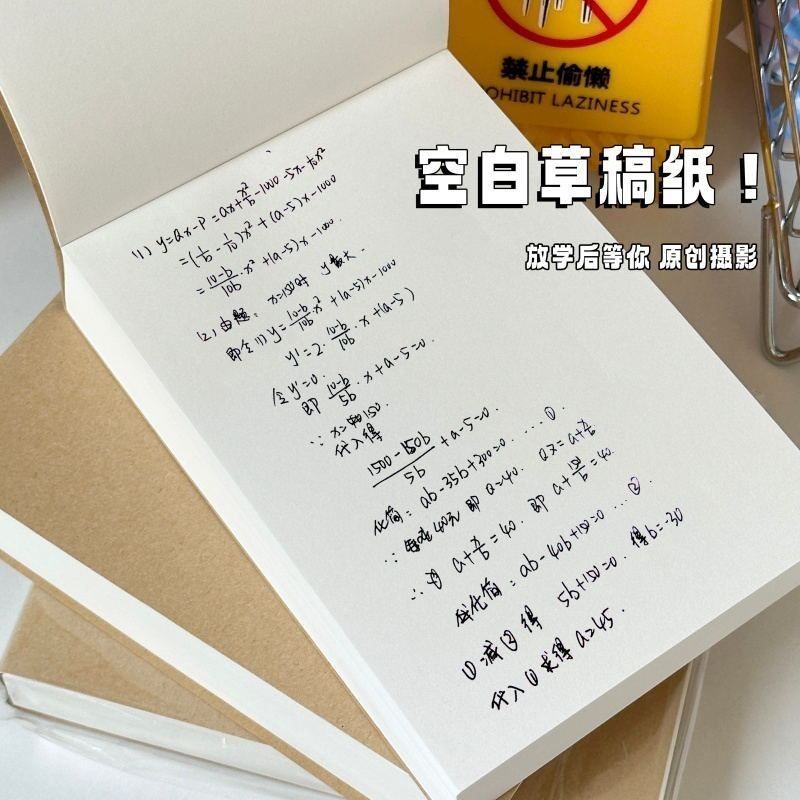 禁止偷懒
OHIBIT LAZINESS
空白草稿纸！
放学后等你 原创摄影
(1) y=ax-p=ax+x²/b-1000-5x-1/10x²
=(1/b-1/10)x²+(a-5)x-1000
=10-b/10b·x²+(a-5)x-1000.
(2) 由题: x=150时 y最大.
即令(1)y=10-b/10b x²+(a-5)x-1000
y'=2·10-b/10b·x+(a-5)
令y'=0.
即 10-b/5b·x+a-5=0.
∵ x=150.
代入得
1500-150b/5b+a-5=0.
化简: ab-35b+300=0. ……①.
∵ 40元 即 Q=40. Qx=a+x/b
∴ a+x/b=40. 即 a+150/b=40.
化简: ab-40b+150=0 …②.
①减②得 5b+150=0. 得b=-30
代入①求得 a=45.